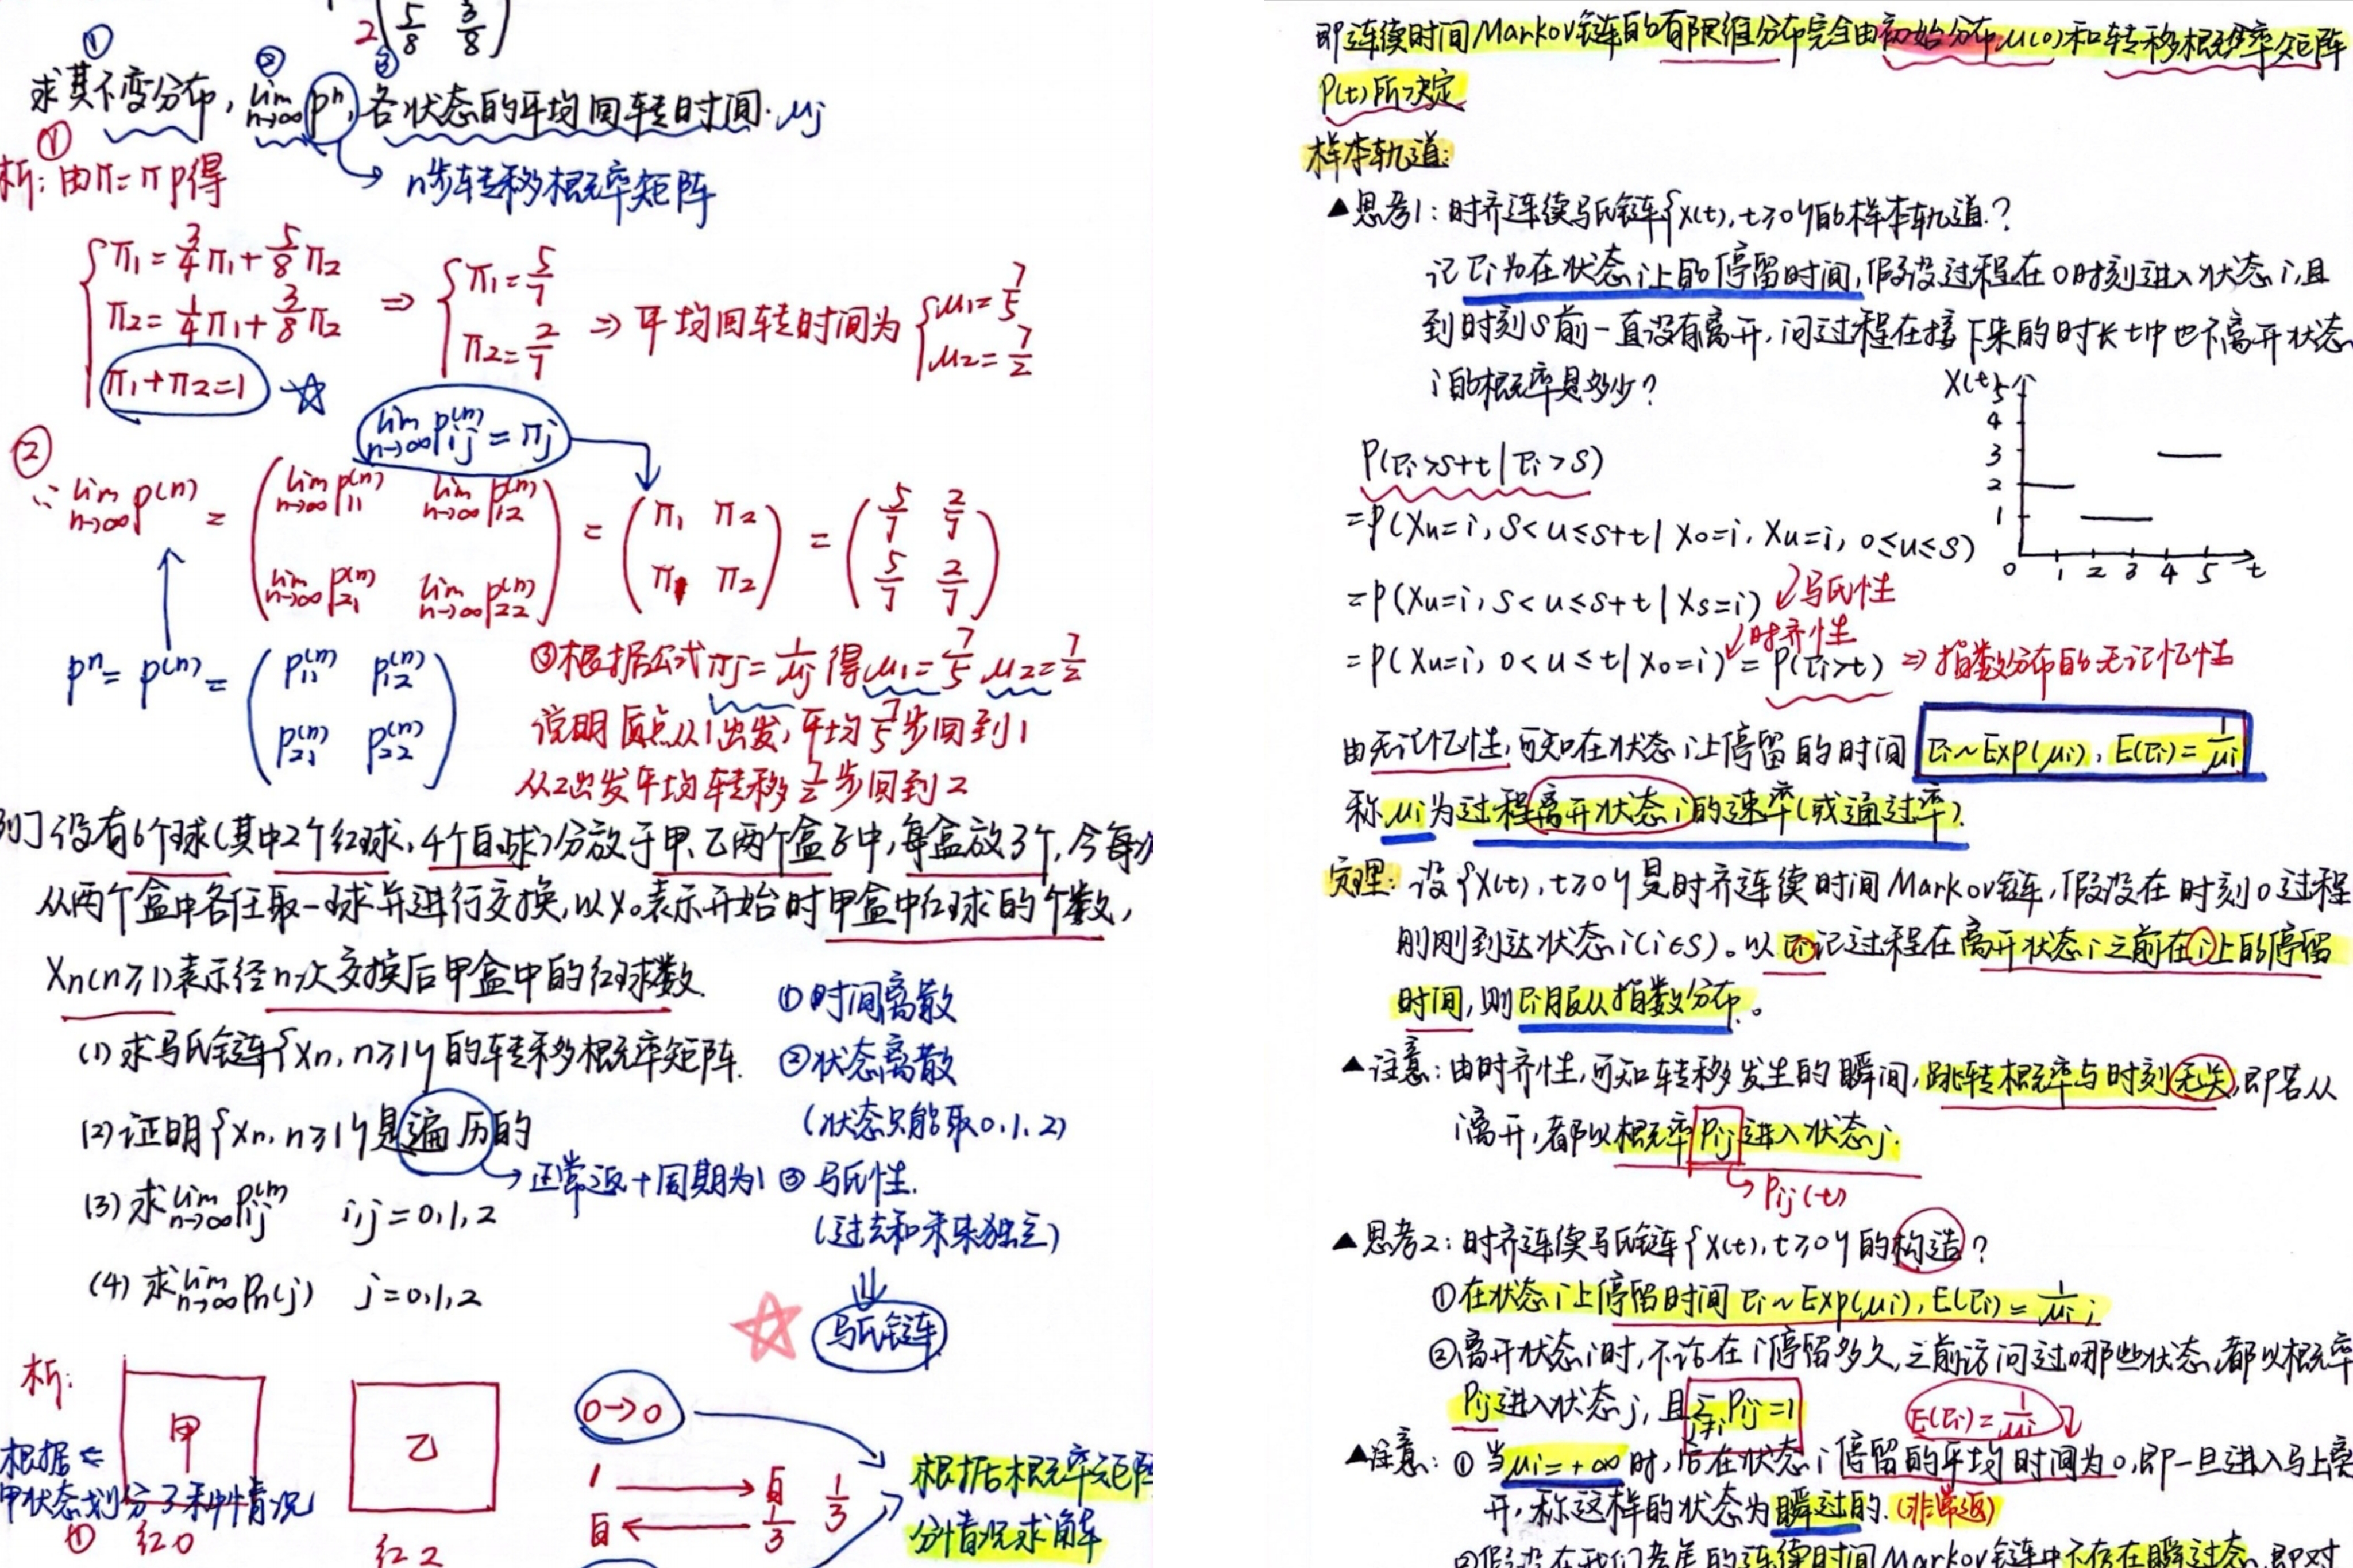 2 ( 5/8 3/8 )
① ② ③
求其不变分布, lim n→∞ pⁿ, 各状态的平均回转时间. μj
→ n步转移概率矩阵
①
析: 由π=πp得
{ π1 = 3/4 π1 + 5/8 π2
π2 = 1/4 π1 + 3/8 π2
π1+π2=1 ☆
⇒ { π1 = 5/7
π2 = 2/7
⇒ 平均回转时间为 { μ1 = 7/5
μ2 = 7/2
lim n→∞ Pij(n) = πj
②
∴ lim n→∞ p(n) = ( lim n→∞ P11(n) lim n→∞ P12(n)
lim n→∞ P21(n) lim n→∞ P22(n) )
= ( π1 π2
π1 π2 )
= ( 5/7 2/7
5/7 2/7 )
pⁿ = p(n) = ( P11(n) P12(n)
P21(n) P22(n) )
③根据公式 πj = 1/μj 得 μ1 = 7/5 μ2 = 7/2
说明质点从1出发, 平均 7/5 步回到1
从2出发平均转移 7/2 步回到2
例] 设有6个球(其中2个红球, 4个白球)分放于甲、乙两个盒子中, 每盒放3个, 今每次
从两个盒中各任取一球并进行交换, 以X₀表示开始时甲盒中红球的个数,
Xn(n≥1)表示经n次交换后甲盒中的红球数.
(1) 求马氏链{Xn, n≥1}的转移概率矩阵.
(2) 证明{Xn, n≥1}是遍历的
→ 正常返+周期为1
(3) 求 lim n→∞ Pij(n) i,j=0,1,2
(4) 求 lim n→∞ Pn(j) j=0,1,2
① 时间离散
② 状态离散
(状态只能取0,1,2)
③ 马氏性.
(过去和未来独立)
⇓
☆ 马氏链
析:
甲
乙
根据
甲状态划分3种情况
① 红0
红2
0→0
1 → 白 1/3
白 ← 1/3
根据概率矩阵
分情况求解
即连续时间Markov链的有限维分布完全由初始分布μ(0)和转移概率矩阵
P(t)所决定
样本轨道:
▲思考1: 时齐连续马氏链{X(t), t≥0}的样本轨道?
记τi为在状态i上的停留时间, 假设过程在0时刻进入状态i, 且
到时刻S前一直没有离开, 问过程在接下来的时长t中也不离开状态
i的概率是多少?
X(t)
5
4
3
2
1
0 1 2 3 4 5 t
P(τi>s+t | τi>s)
=P(Xu=i, s<u≤s+t | X0=i, Xu=i, 0≤u≤s)
=P(Xu=i, s<u≤s+t | Xs=i) ↙马氏性
=P(Xu=i, 0<u≤t | X0=i) ↙时齐性 = P(τi>t) ⇒ 指数分布的无记忆性
由无记忆性, 可知在状态i上停留的时间 τi~Exp(μi), E(τi)=1/μi
称μi为过程离开状态i的速率(或通过率).
定理: 设{X(t), t≥0}是时齐连续时间Markov链, 假设在时刻0过程
刚刚到达状态i(i∈S)。以τi记过程在离开状态i之前在i上的停留
时间, 则τi服从指数分布.。
▲注意: 由时齐性, 可知转移发生的瞬间, 跳转概率与时刻无关, 即若从
i离开, 都以概率Pij进入状态j.
↳ Pij(t)
▲思考2: 时齐连续马氏链{X(t), t≥0}的构造?
①在状态i上停留时间τi~Exp(μi), E(τi)=1/μi;
②离开状态i时, 不论在i停留多久, 之前访问过哪些状态, 都以概率
Pij进入状态j, 且 Σ j≠i Pij=1
E(τi)=1/μi
▲注意: ①当μi=+∞时, 它在状态i停留的平均时间为0, 即一旦进入马上离
开, 称这样的状态为瞬过的.(非常返)
②假设在我们考虑的连续时间Markov链中不存在瞬过态, 即对